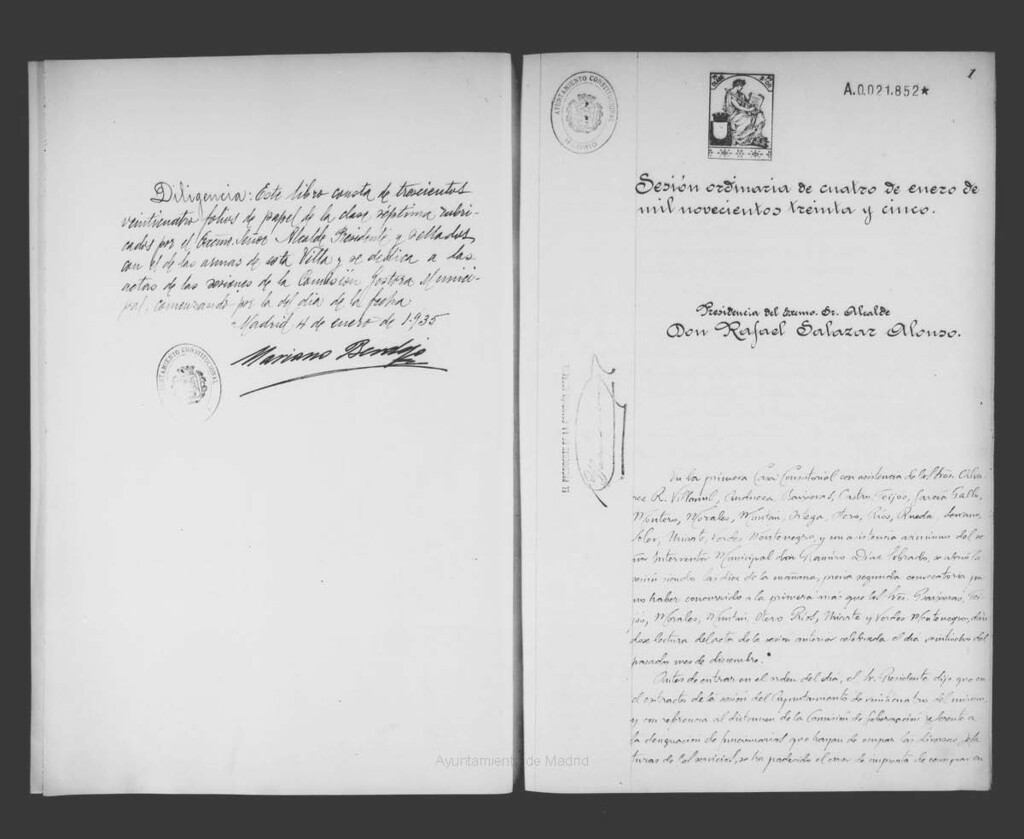 Diligencia: Este libro consta de trescientos
veinticuatro folios de papel de la clase séptima rubri-
cados por el Excmo. Señor Alcalde Presidente y sellados
con el de las armas de esta Villa y se dedica a las
actas de las sesiones de la Comisión Gestora Munici-
pal, comenzando por la del dia de la fecha
Madrid 4 de enero de 1935
Mariano
AYUNTAMIENTO CONSTITUCIONAL
1
AYUNTAMIENTO CONSTITUCIONAL
MADRID
A.0.021.852*
Sesión ordinaria de cuatro de enero de
mil novecientos treinta y cinco.
Presidencia del Excmo. Sr. Alcalde
Don Rafael Salazar Alonso.
EL PRESIDENTE DE LA
En la primera Casa Consistorial con asistencia de los Sres. Alva-
rez R. Villamil, Andueza, Barrena, Castro, Feijóo, García Gallo,
Montero, Morales, Muntán, Ortega, Otero, Ríos, Rueda, Serrano,
Soler, Uriarte, Verdes Montenegro, y con asistencia asimismo del se-
ñor Interventor Municipal don Ramiro Díaz Sobrado, se abrió la
sesión siendo las diez de la mañana, previa segunda convocatoria por
no haber concurrido a la primera más que los Sres. Fei-
jóo, Morales, Muntán, Otero, Ríos, Uriarte y Verdes Montenegro, dán-
dose lectura del acta de la sesión anterior celebrada el día veintiocho del
pasado mes de diciembre.
Antes de entrar en el orden del día, el Sr. Presidente dijo que en
el extracto de la sesión del Ayuntamiento de veinticuatro del mismo,
y con referencia al dictamen de la Comisión de Gobernación referente a
la designación de funcionarios que hayan de ocupar las diversas jefa-
turas de los servicios, se ha padecido el error de imprenta de consignar en
Ayuntamiento de Madrid